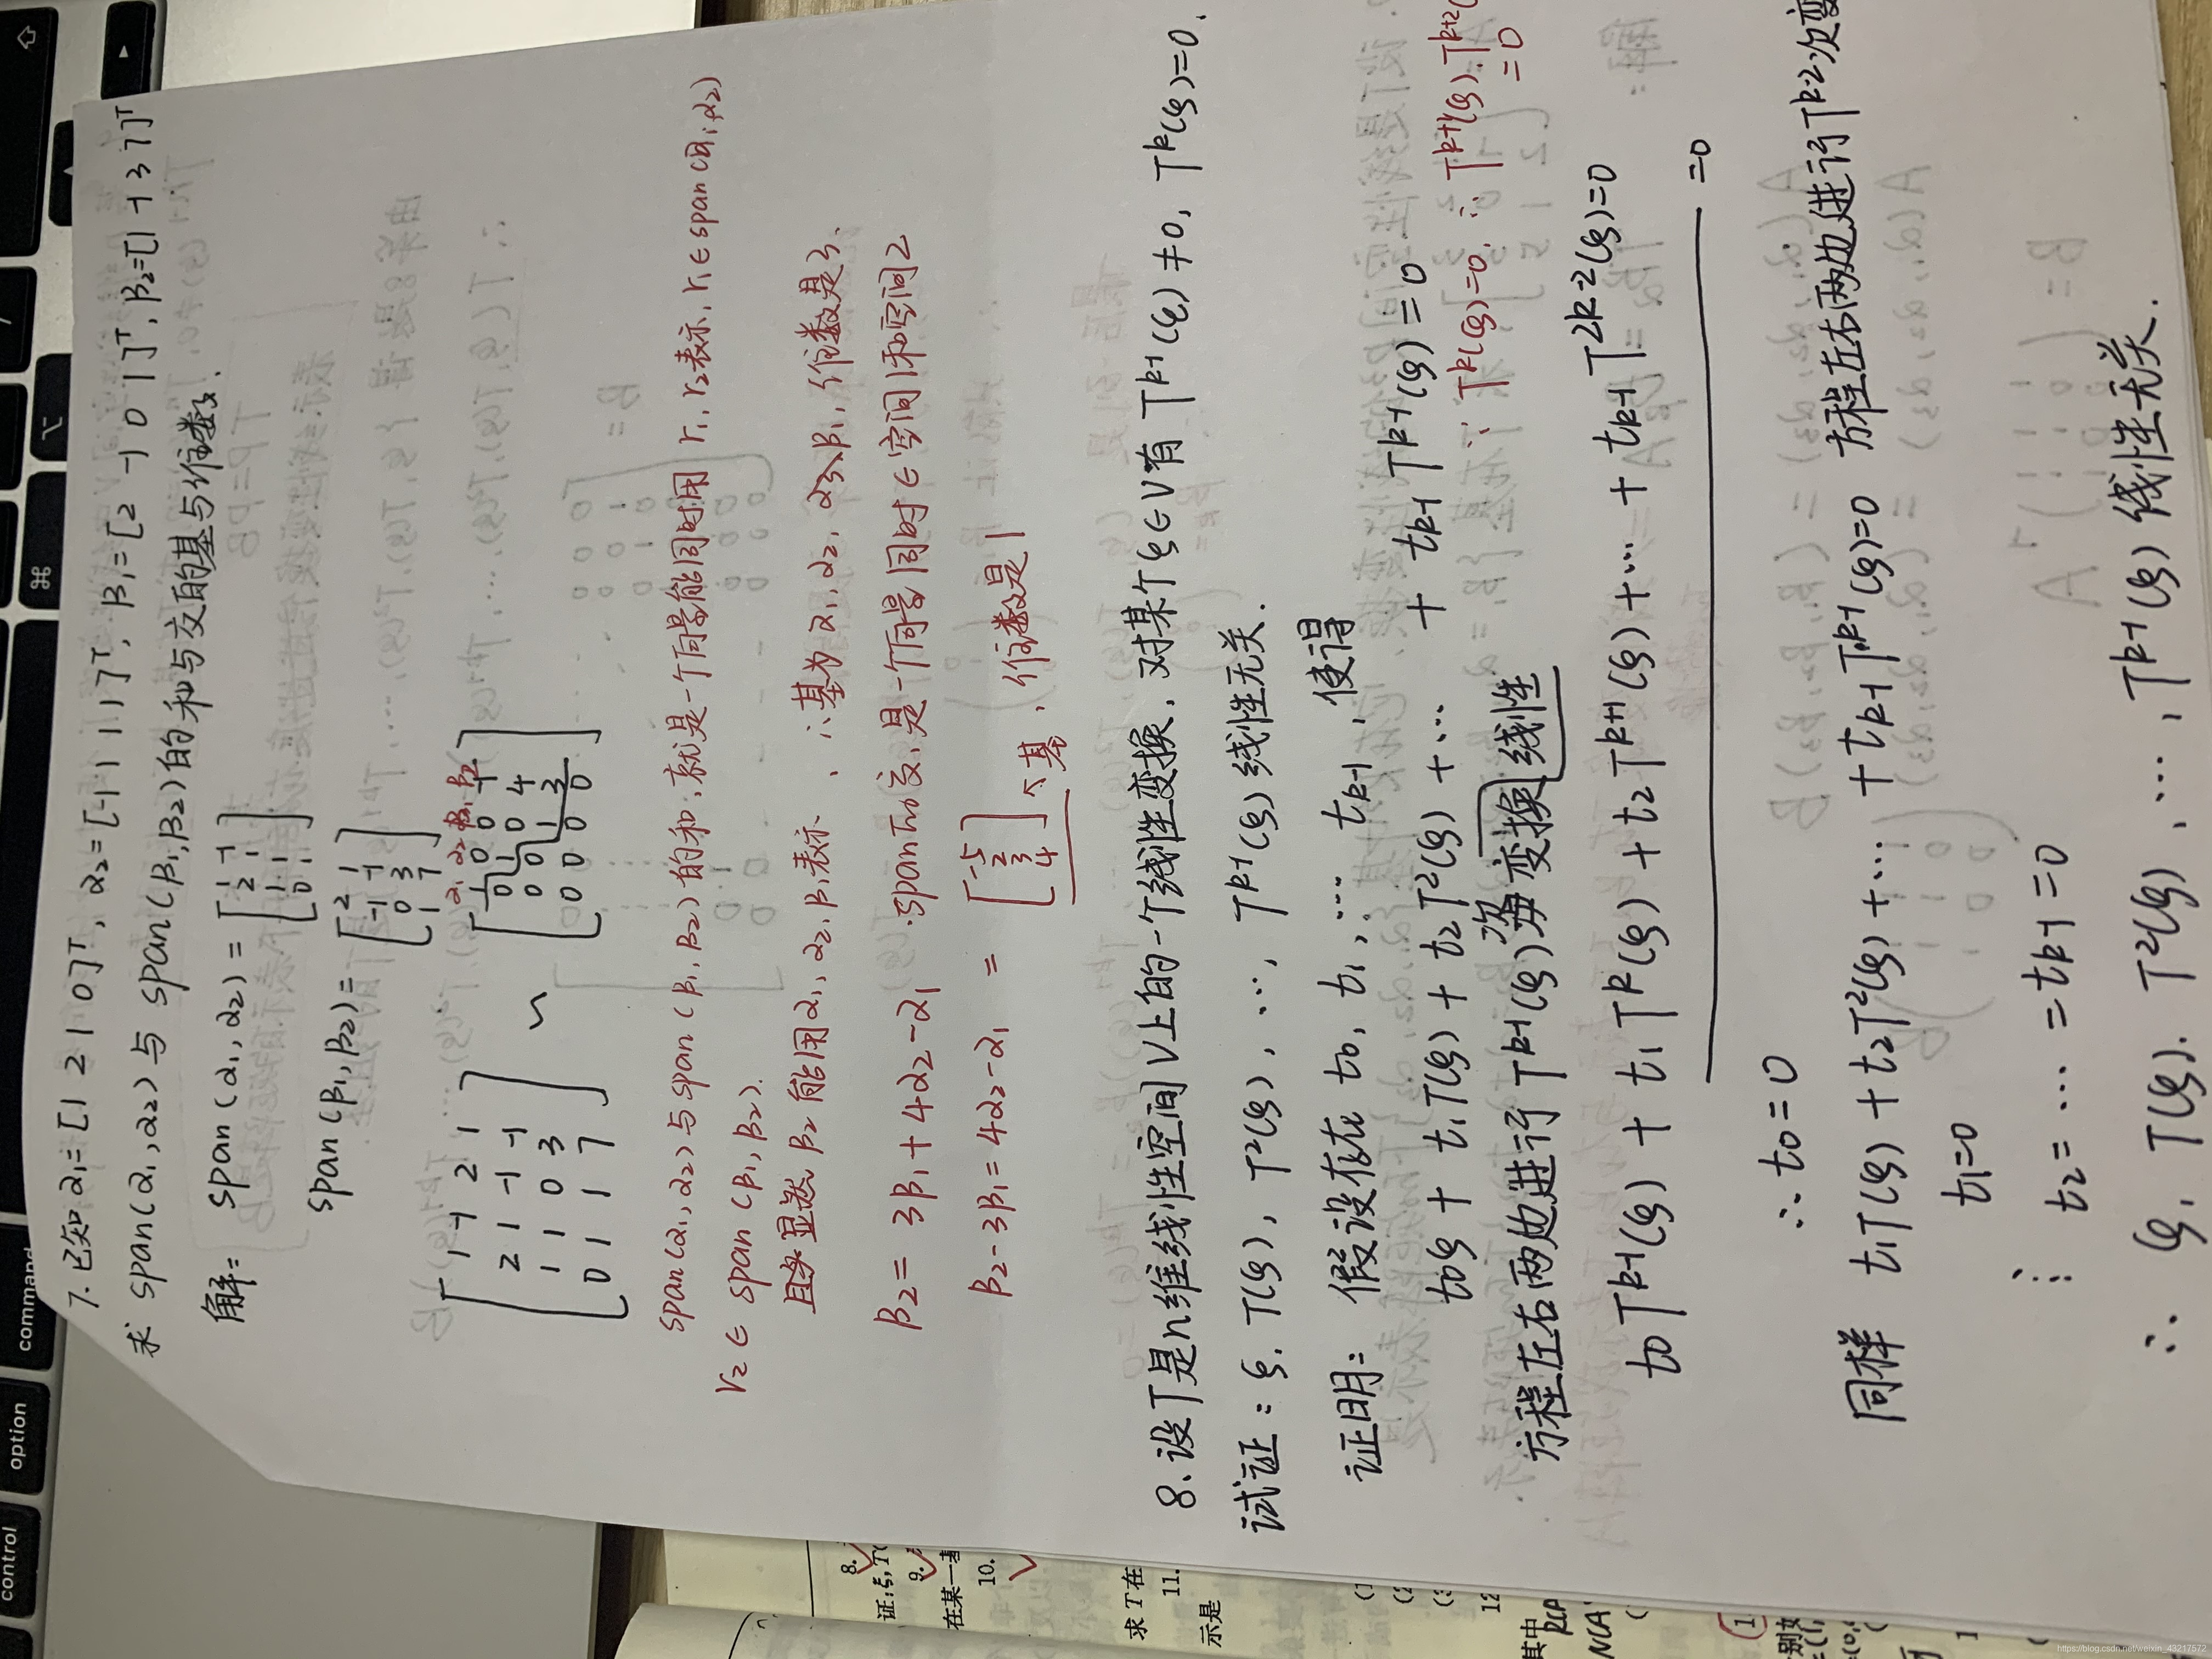 7. 已知 α₁=[1 2 1 0]ᵀ, α₂=[-1 1 1 1]ᵀ, β₁=[2 -1 0 1]ᵀ, β₂=[1 -1 3 7]ᵀ
求 span(α₁,α₂)与 span(β₁,β₂)的和与交的基与维数.
解: span(α₁,α₂)= [1 -1; 2 1; 1 1; 0 1]
span(β₁,β₂)= [2 1; -1 -1; 0 3; 1 7]
α₁ α₂ β₁ β₂
[1 -1 2 1; 2 1 -1 -1; 1 1 0 3; 0 1 1 7] ~ [1 0 0 -1; 0 1 0 4; 0 0 1 3; 0 0 0 0]
span(α₁,α₂)与span(β₁,β₂)的和,就是一个向量能同时用 r₁, r₂表示, r₁∈span(α₁,α₂)
r₂∈ span(β₁,β₂).
且显然 β₂ 能用α₁,α₂,β₁表示、∴基为α₁,α₂,β₁,维数是3.
β₂= 3β₁+4α₂-α₁ span而交,是一个向量同时∈空间1和空间2
β₂-3β₁=4α₂-α₁ = [-5 2 3 4] 个基,维数是1
8.设T是n维线性空间V上的一个线性变换,对某个ξ∈V有 Tᵏ⁻¹(ξ)≠0, Tᵏ(ξ)=0.
试证: ξ, T(ξ), T²(ξ), …, Tᵏ⁻¹(ξ)线性无关.
证明: 假设存在 t₀, t₁, … tₖ₋₁, 使得
t₀ξ + t₁T(ξ) + t₂T²(ξ) + … + tₖ₋₁Tᵏ⁻¹(ξ)=0
∵ Tᵏ(ξ)=0, ∴ Tᵏ⁺¹(ξ).Tᵏ⁺²(
=0
方程左右两边进行 Tᵏ⁻¹(ξ)次变换 线性
t₀Tᵏ⁻¹(ξ) + t₁Tᵏ(ξ) + t₂Tᵏ⁺¹(ξ) +… + tₖ₋₁T²ᵏ⁻²(ξ)=0
=0
∴ t₀=0
同样 t₁T(ξ) + t₂T²(ξ) +… + tₖ₋₁Tᵏ⁻¹(ξ)=0 方程左右两边进行Tᵏ⁻²次变
t₁=0
⋮ t₂= … =tₖ₋₁=0
∴ ξ, T(ξ). T²(ξ), …, Tᵏ⁻¹(ξ)线性无关.
control
option
command
⌘
⌥
8.
证:ξ,T(
9.
在某一
10.
求 T 在
11.
示是
(1
(2
(3
12
其中
https://blog.csdn.net/weixin_43217572